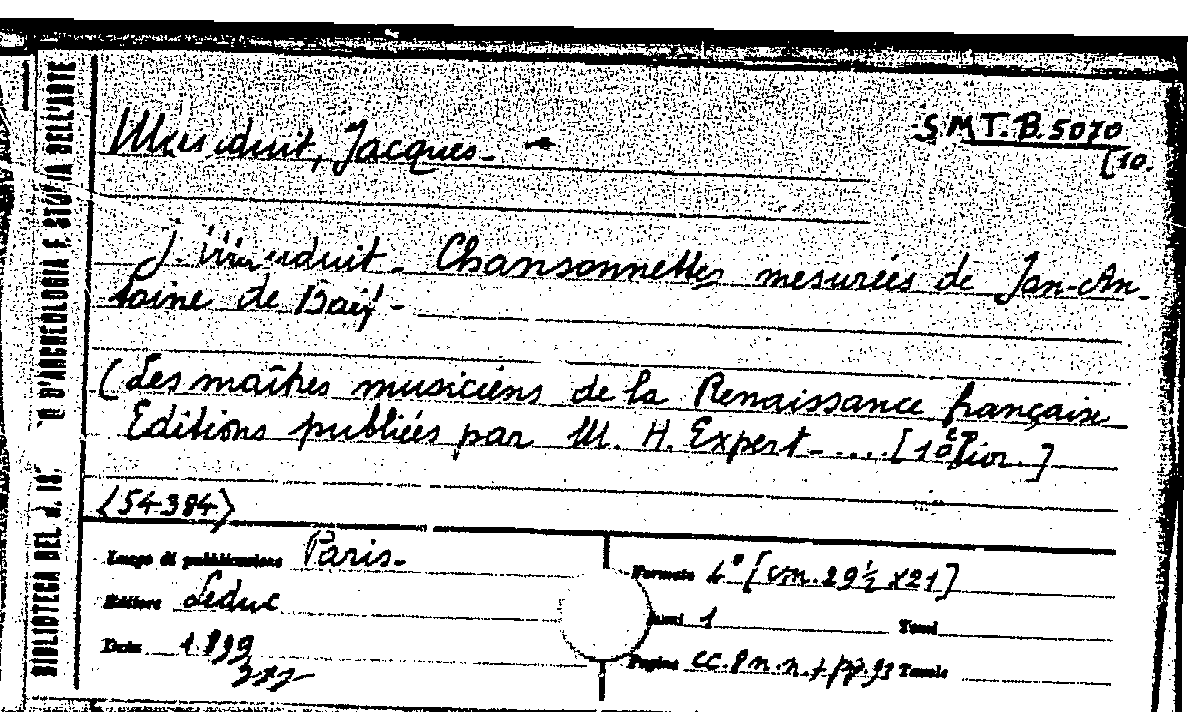 Mauduit, Jacques. -
S.M.T. B. 5070
[10.
J. Mauduit - Chansonnettes mesurées de Jan-An-
toine de Baïf -
(Les maîtres musiciens de la Renaissance française
Editions publiées par M. H. Expert - .... [10 livr.]
<54384>
Luogo di pubblicazione Paris.
Formato 4° [cm. 29½ x 21]
Editore Leduc
1
Tomi
Data 1899
Pagine cc. 8 n. n. + pp. 93 Tavole
BIBLIOTECA DEL R. IS
D'ARCHEOLOGIA E STORIA DELL'ARTE